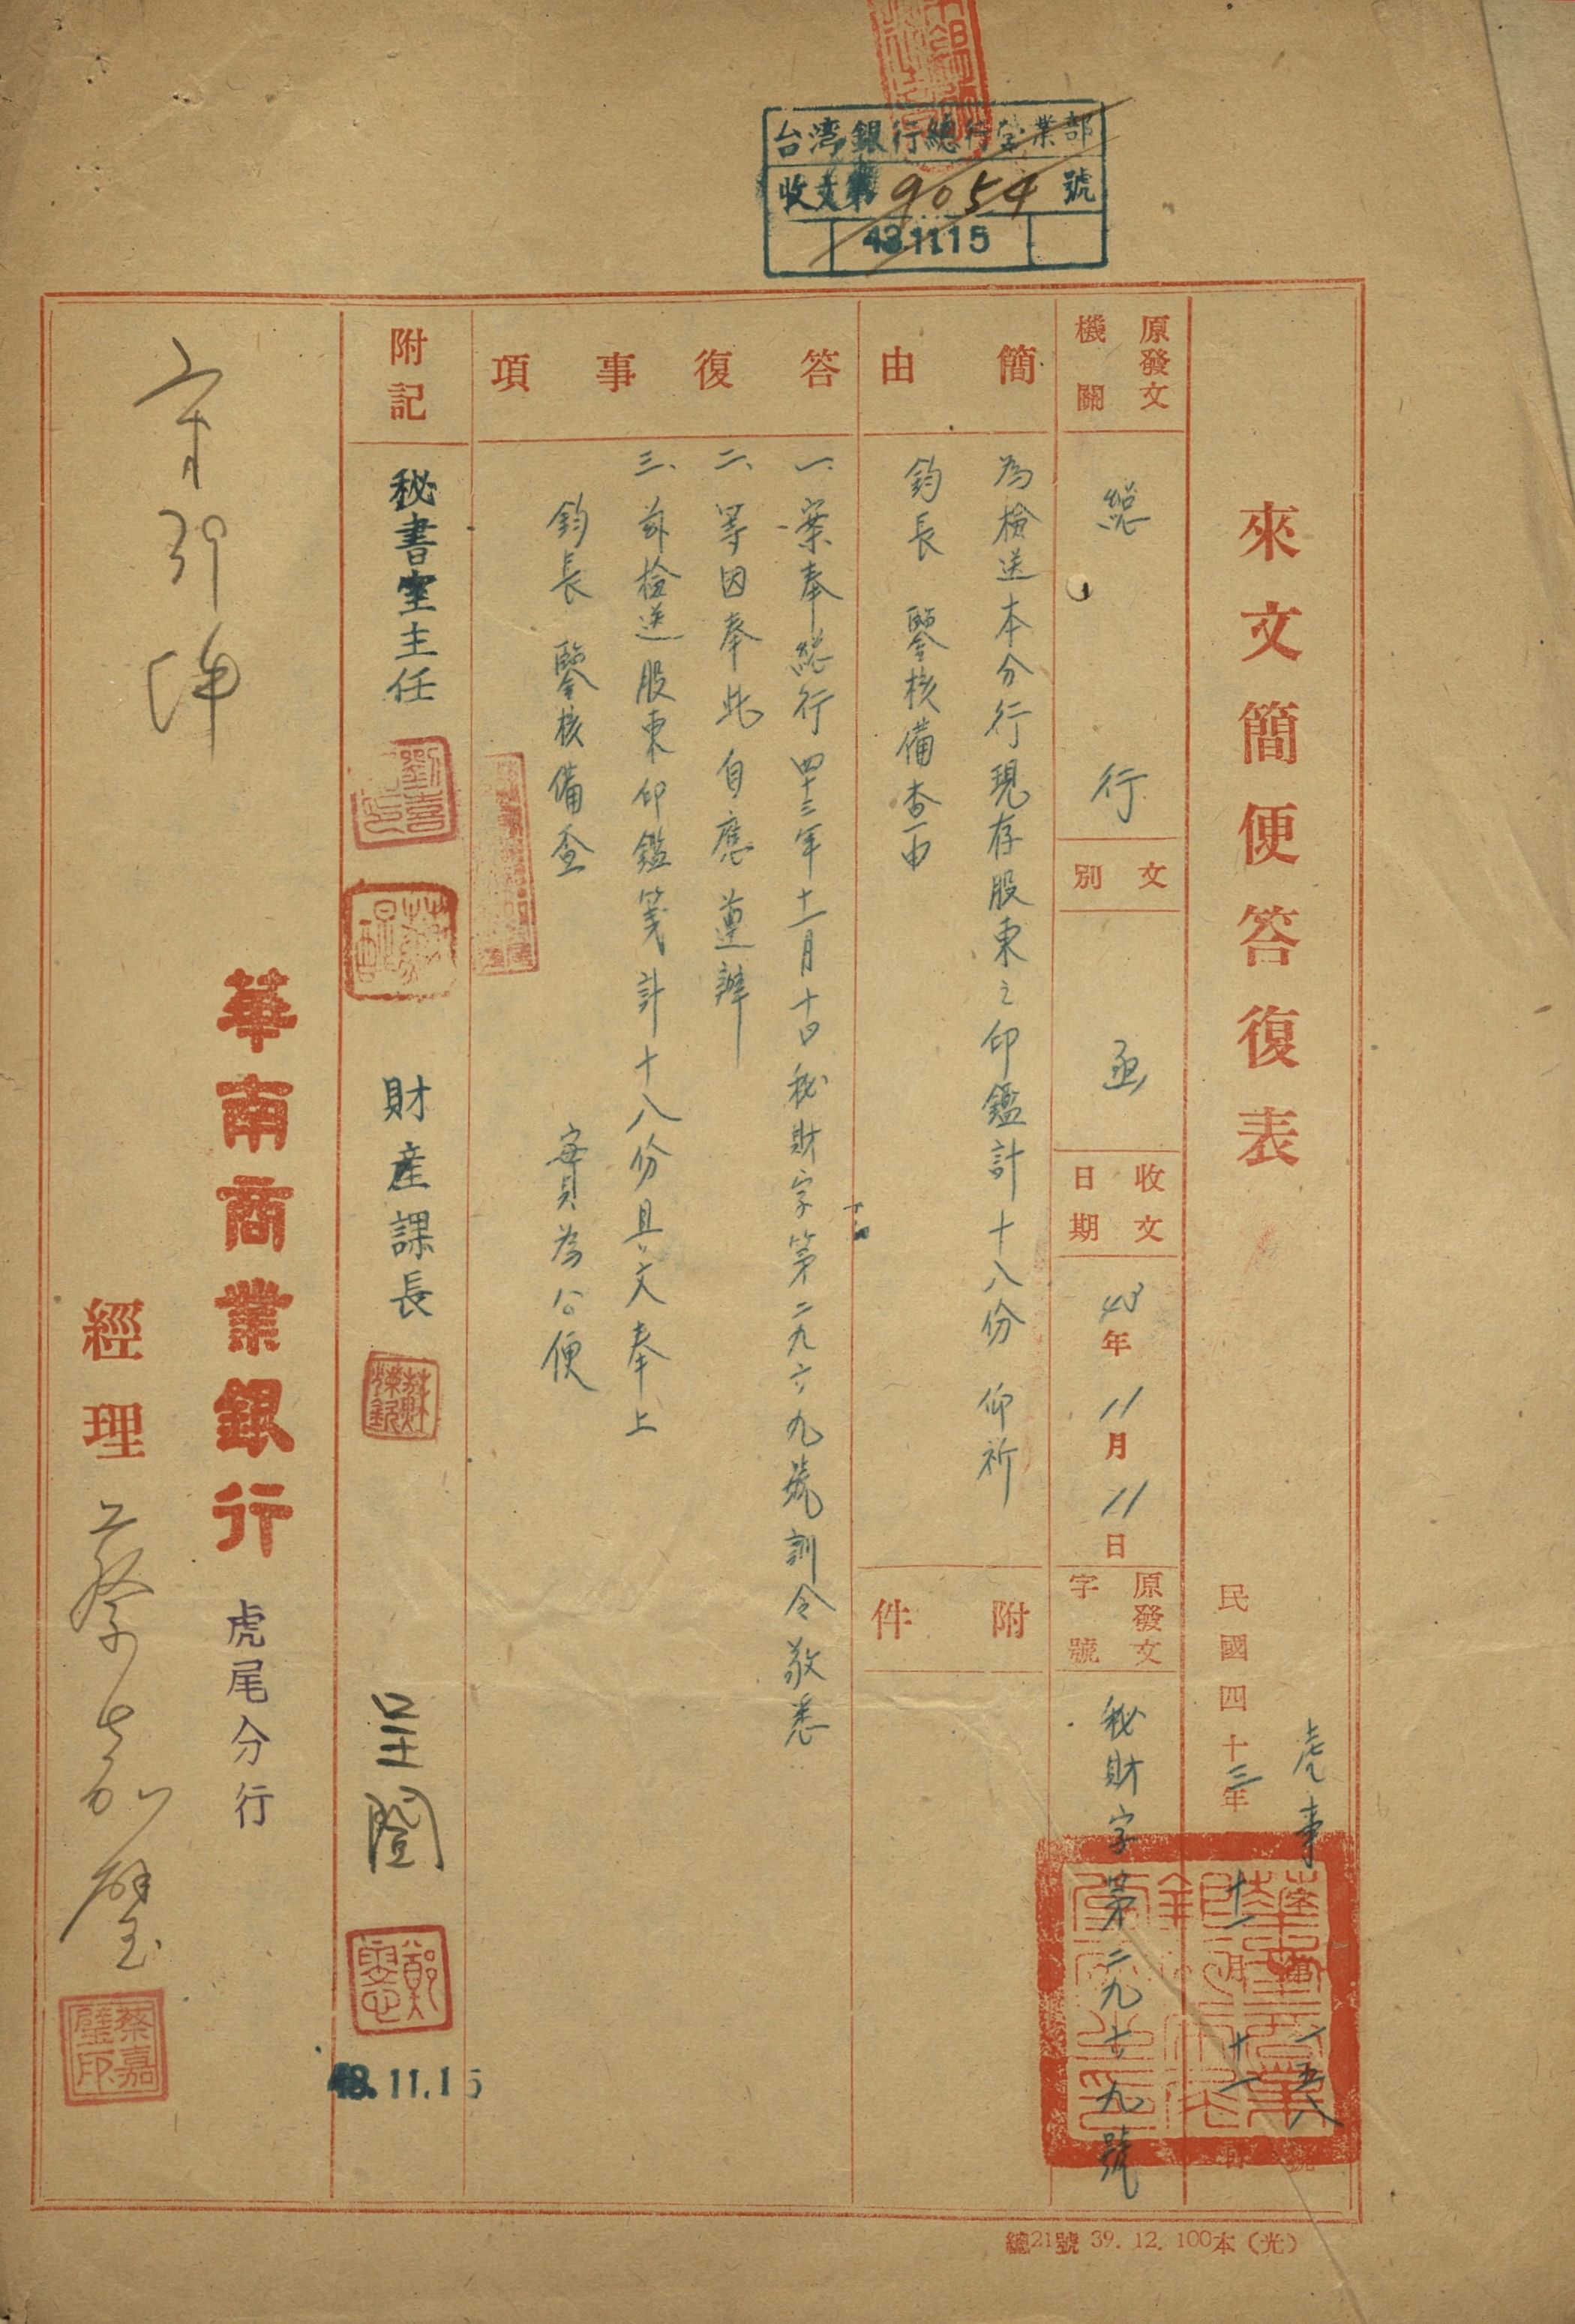 台湾銀行總行営業部
收文第9054號
43.11.15
來文簡便答復表
虎事字第一五八號
民國四十三年十一月十一日
原發文機關
總行
文別
函
收文日期
43年11月11日
原發文字號
秘財字第二九六九號
簡由
為檢送本分行現存股東之印鑑計十八份 仰祈
鈞長 鑒核備查由
附件
答復事項
一、案奉總行四十三年十一月十日秘財字第二九六九號訓令敬悉
二、等因奉此自應遵辦
三、茲檢送股東印鑑箋計十八份具文奉上
鈞長 鑒核備查 實為公便
附記
秘書室主任
財產課長
呈閱
43.11.15
華南商業銀行
虎尾分行
經理
蔡嘉璧
蔡嘉璧印
總21號 39. 12. 100本(光)